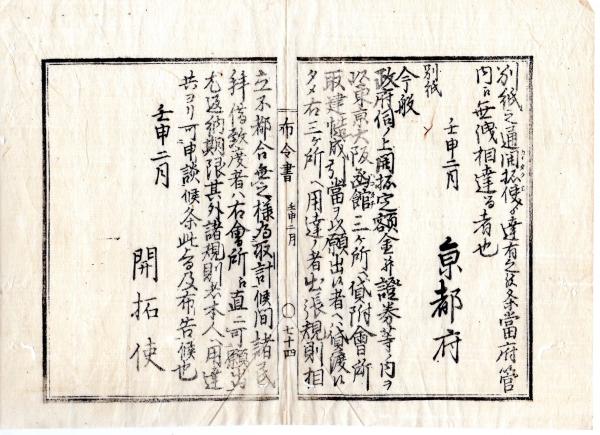 別紙之通開拓使ゟ達有之候条當府管
内江無洩相達る者也
壬申二月
京都府
別紙
今般
政府伺ノ上開拓定額金并證券等ノ内ヲ
以東京大阪函館三ヶ所ヘ貸附會所
取建 引當ヲ以願出候者ヘハ貸渡候
タメ右三ヶ所ヘ用達ノ者出張規則相
布令書
壬申二月
〇七十四
立不都合無之様為取計候間諸民
拝借致度者ハ右會所江直ニ可願出
尤返納期限其外諸規則者本人ヘ用達
共ヨリ可申談候条此旨及布告候也
壬申二月
開拓使